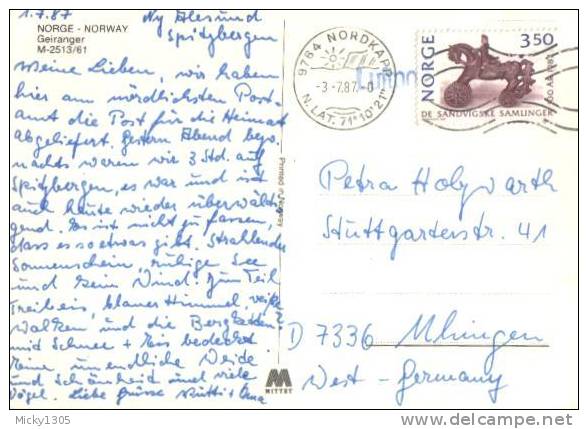 1.7.87 Ny Alesund
Spitzbergen
NORGE - NORWAY
Geiranger
M-2513/61
Meine Lieben, wir haben
hier am nördlichsten Post-
amt die Post für die Heimat
abgeliefert. Gestern Abend bezw.
nachts waren wir 3 Std. auf
Spitzbergen, es war und ist
auch heute wieder überwälti
gend. Es ist nicht zu fassen,
dass es so etwas gibt. Strahlender
Sonnenschein, ruhige See
und kein Wind. Zum Teil
Treibeis, blauer Himmel, weiße
Wolken und die Bergketten
mit Schnee + Eis bedeckt.
Eine unendliche Weide
und Schönheit und viele
Vögel. Liebe Grüsse Mutti + Oma
Printed in Norway
MITTET
9764 NORDKAPP
-3-7.87.-0
N.LAT. 71°10'21"
NORGE 350
DE SANDVIGSKE SAMLINGER
100 ÅR 1987
Petra Holzwarth
Stuttgarterstr. 41
D 7336 Uhingen
West-Germany
Micky1305